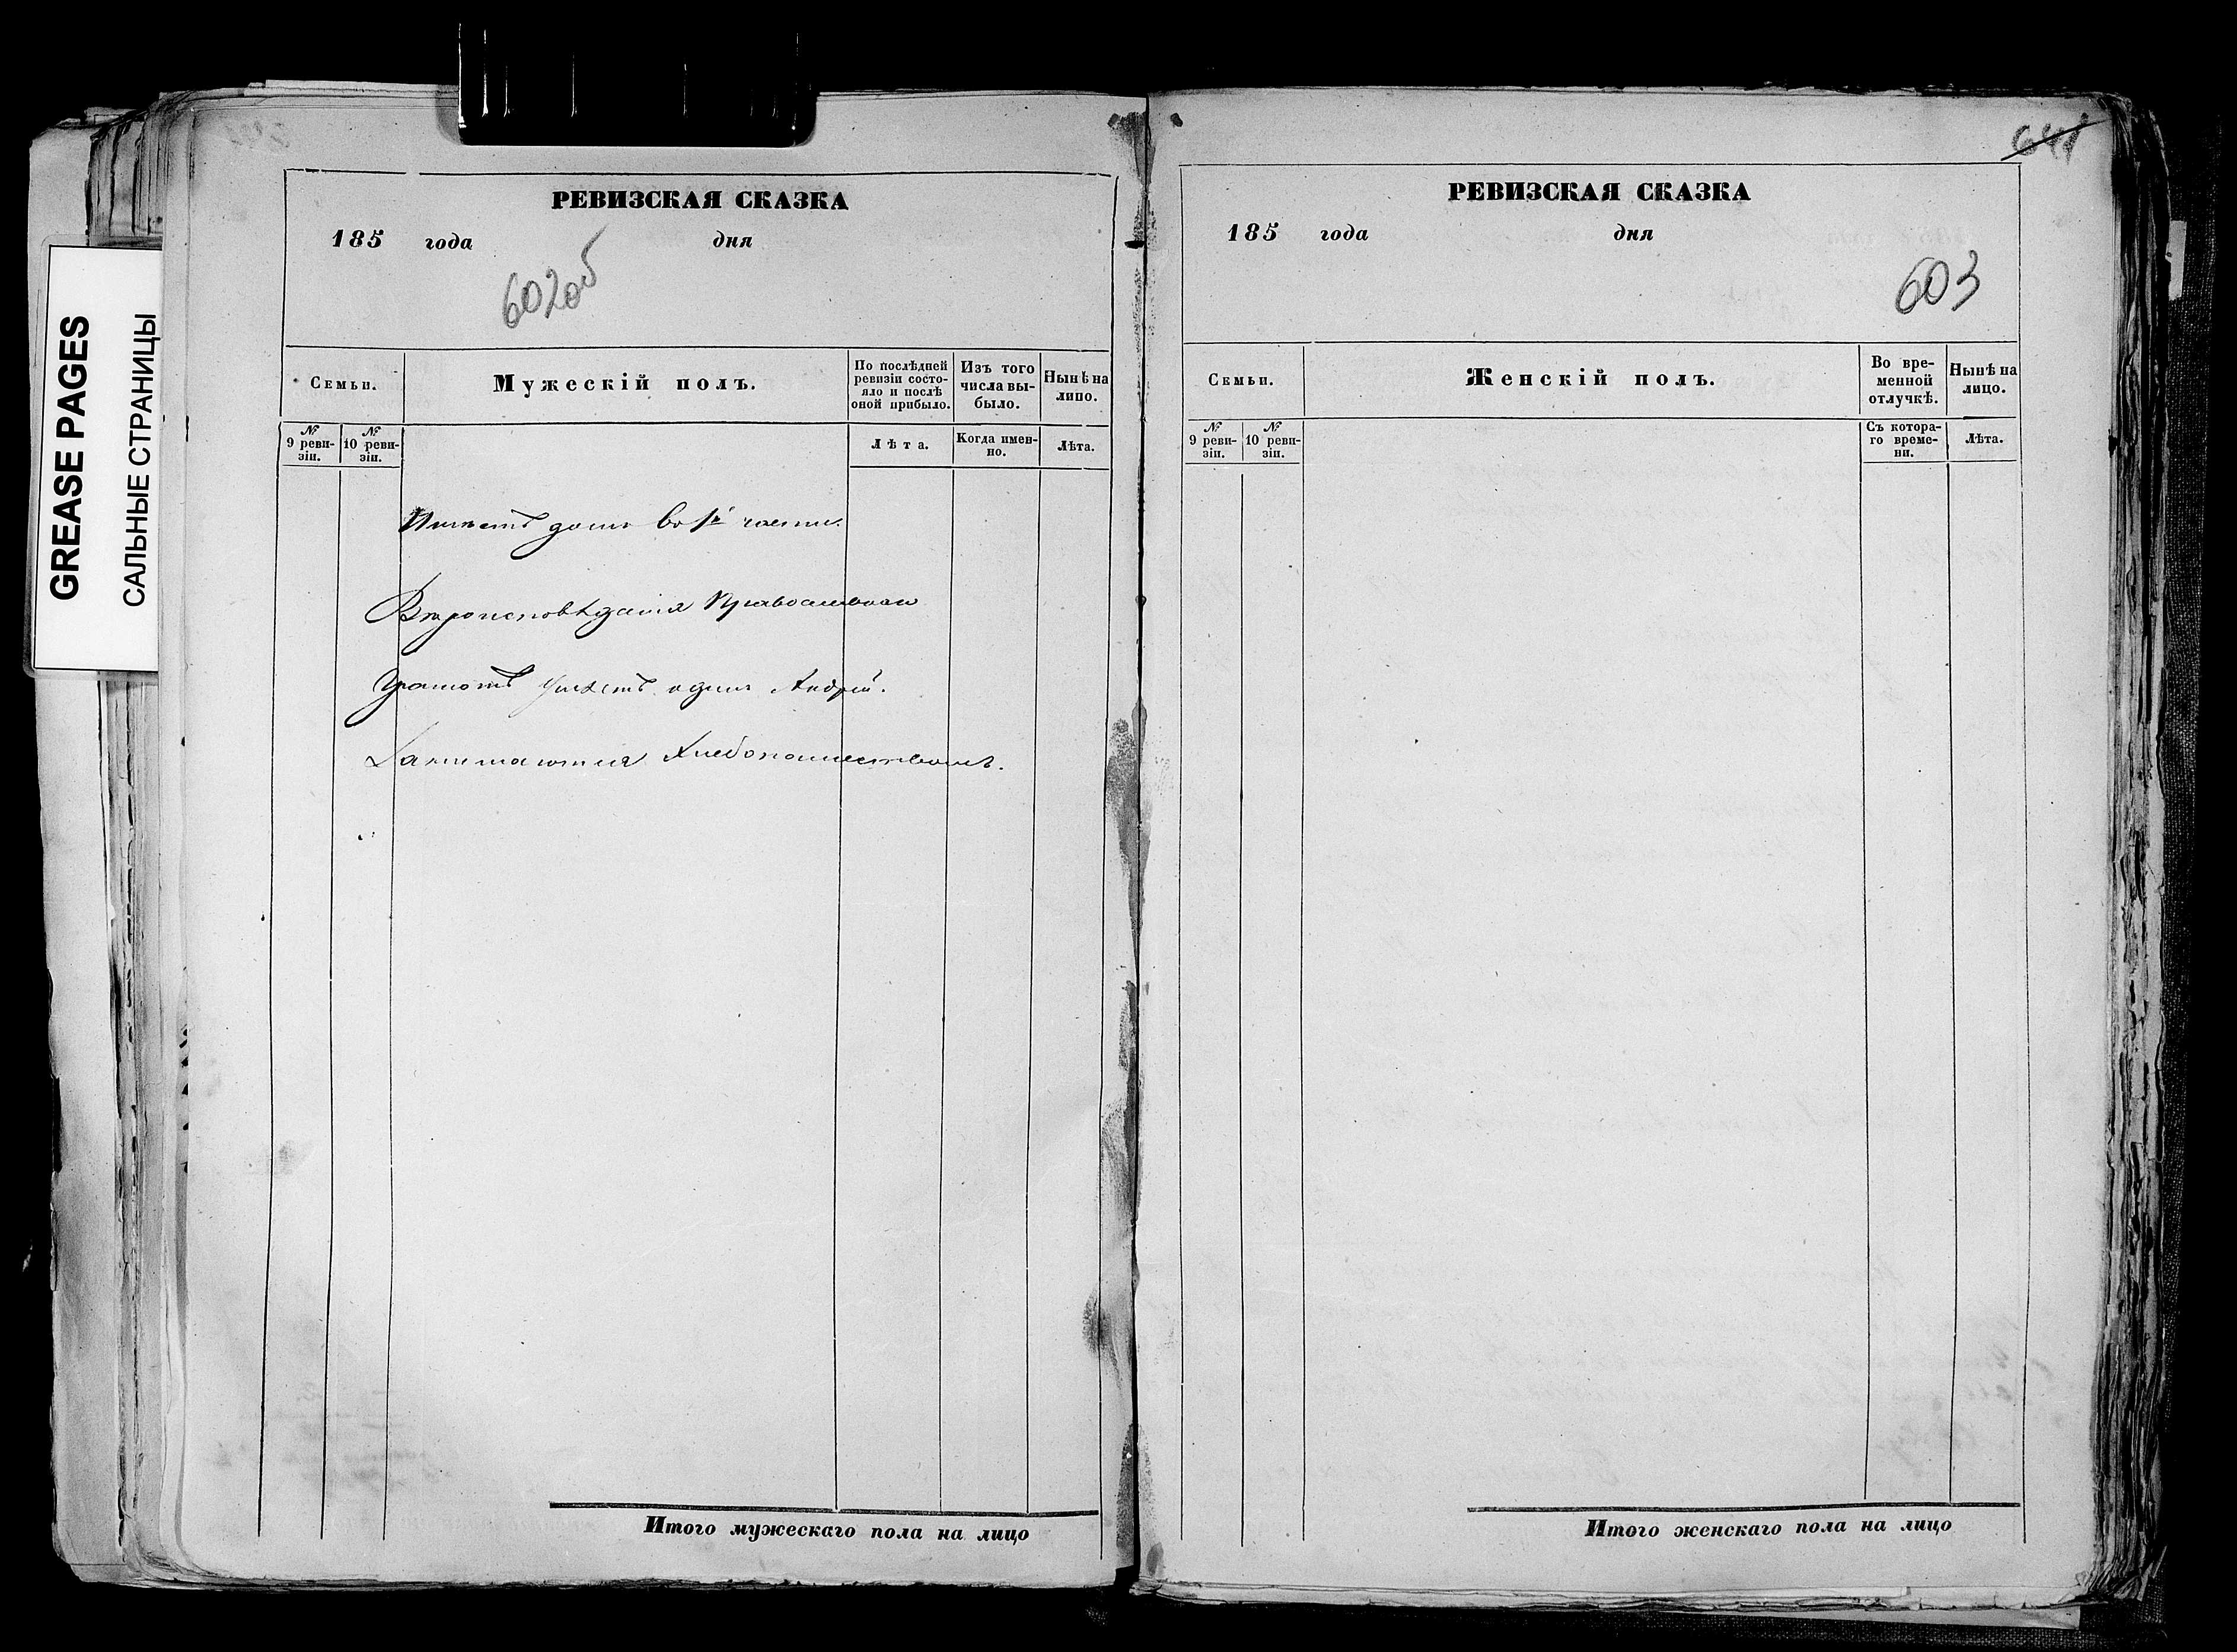 GREASE PAGES
САЛЬНЫЕ СТРАНИЦЫ
РЕВИЗСКАЯ СКАЗКА
185 года дня
602об
Семьи.
Мужескій полъ.
По послѣдней ревизіи состо-
яло и послѣ
оной прибыло.
Изъ того
числа вы-
было.
Нынѣ на
лицо.
№
9 реви-
зіи.
№
10 реви-
зіи.
Лѣта.
Когда имен-
но.
Лѣта.
Имѣетъ домъ во 1й части.
Вѣроисповѣданія Православнаго
Грамотѣ умѣетъ одинъ Андрей.
Занимаются Хлебопашествомъ.
Итого мужескаго пола на лицо
641
РЕВИЗСКАЯ СКАЗКА
185 года дня
603
Семьи.
Женскій полъ.
Во вре-
менной
отлучкѣ.
Нынѣ на
лицо.
№
9 реви-
зіи.
№
10 реви-
зіи.
Съ котора-
го време-
ни.
Лѣта.
Итого женскаго пола на лицо